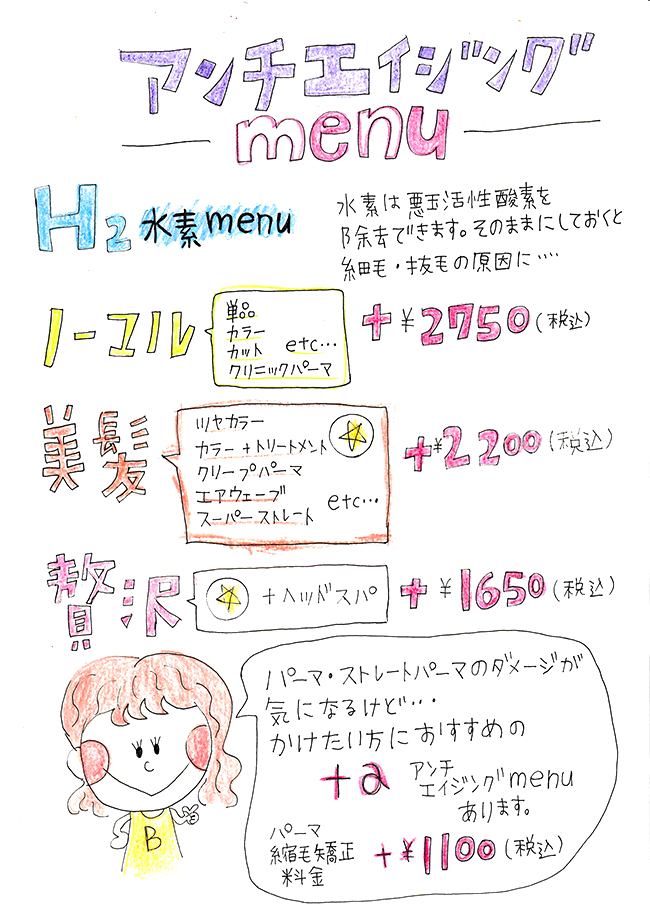 アンチエイジング
menu
H2 水素menu
水素は悪玉活性酸素を
除去できます。そのままにしておくと
細毛・抜毛の原因に‥‥
ノーマル
単品
カラー
カット etc…
クリニックパーマ
+¥2750(税込)
美髪
ツヤカラー
カラー+トリートメント
クリープパーマ
エアウェーブ
スーパーストレート etc…
+¥2200(税込)
贅沢
+ヘッドスパ
+¥1650(税込)
パーマ・ストレートパーマのダメージが
気になるけど・・・
かけたい方におすすめの
+a アンチ
エイジングmenu
あります。
パーマ
縮毛矯正
料金
+¥1100(税込)
B